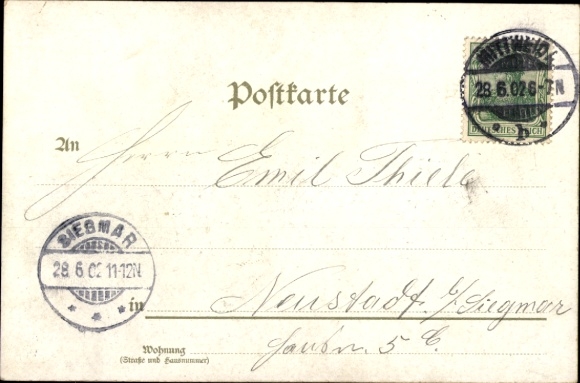 Postkarte
MITTWEIDA
28.6.02 6-7N
b
DEUTSCHES REICH
An Herrn Emil Thiele
SIEGMAR
28.6.02 11-12N
* * *
in Neustadt b/Siegmar
Wohnung
(Straße und Hausnummer)
5 C.